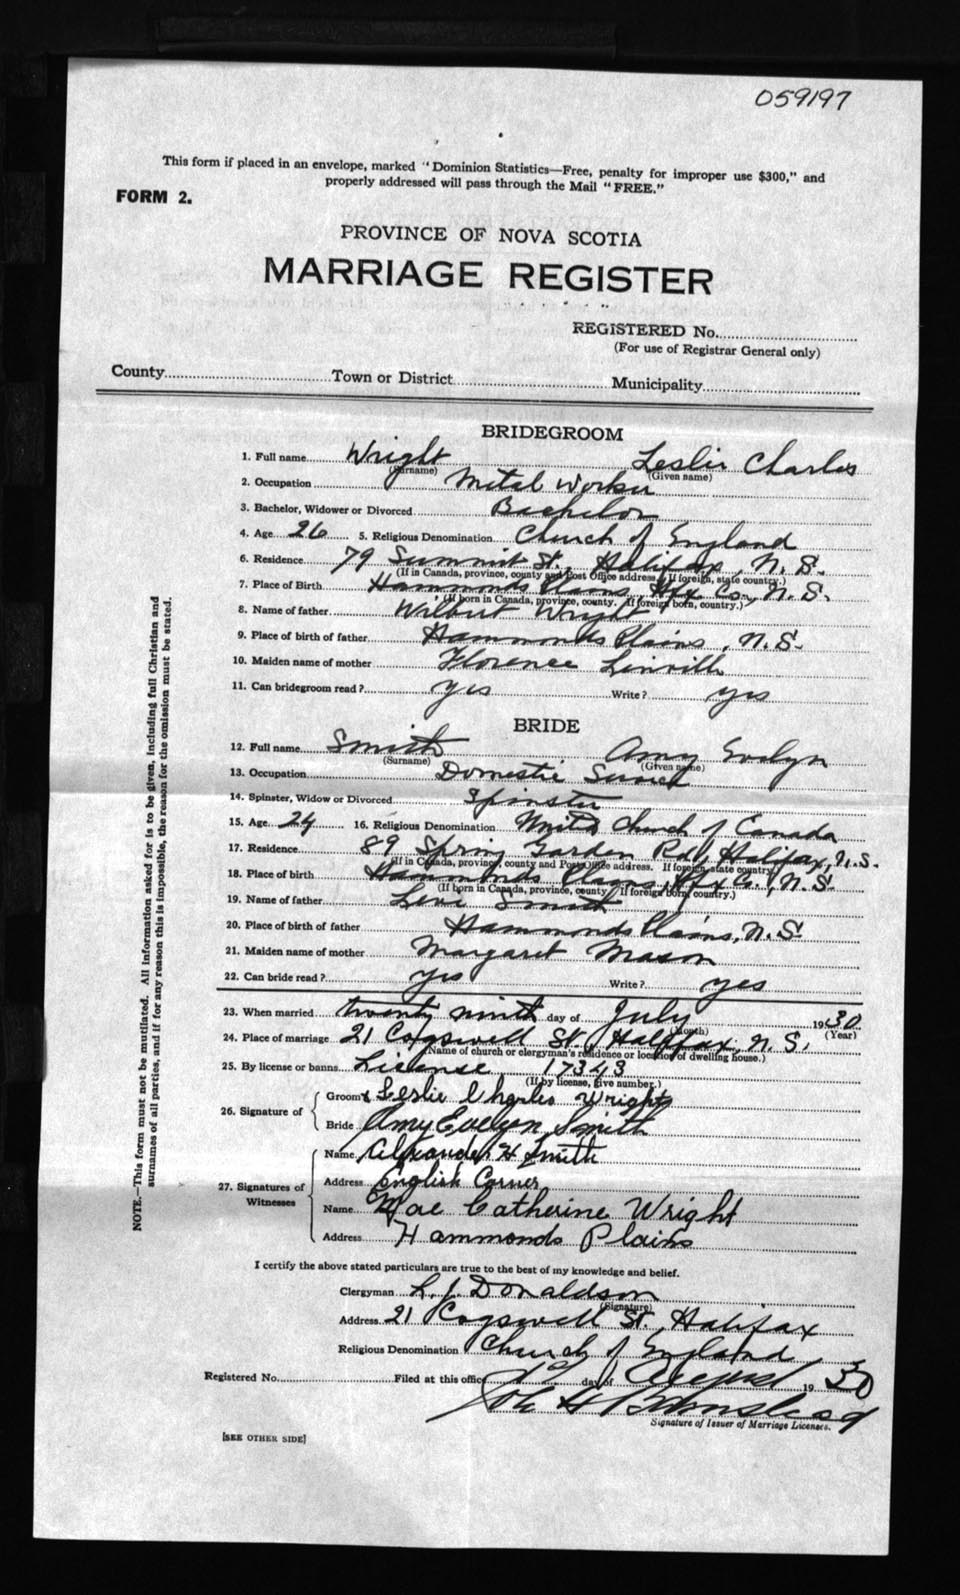 059197
This form if placed in an envelope, marked "Dominion Statistics—Free, penalty for improper use $300," and
properly addressed will pass through the Mail "FREE."
FORM 2.
PROVINCE OF NOVA SCOTIA
MARRIAGE REGISTER
REGISTERED No.
(For use of Registrar General only)
County Town or District Municipality
BRIDEGROOM
1. Full name Wright Leslie Charles
(Surname) (Given name)
2. Occupation Metal Worker
3. Bachelor, Widower or Divorced Bachelor
4. Age 26 5. Religious Denomination Church of England
6. Residence 79 Summit St., Halifax, N. S.
(If in Canada, province, county and Post Office address. If foreign, state country.)
7. Place of Birth Hammonds Plains, Hfx Co., N. S.
(If born in Canada, province, county. If foreign born, country.)
8. Name of father Wilbert Wright
9. Place of birth of father Hammonds Plains, N. S.
10. Maiden name of mother Florence
11. Can bridegroom read? yes Write? yes
BRIDE
12. Full name Smith Amy Evelyn
(Surname) (Given name)
13. Occupation Domestic Service
14. Spinster, Widow or Divorced Spinster
15. Age 24 16. Religious Denomination United Church of Canada
17. Residence 89 Spring Garden Rd, Halifax, N. S.
(If in Canada, province, county and Post Office address. If foreign, state country)
18. Place of birth Hammonds Plains, Hfx Co., N. S.
(If born in Canada, province, county. If foreign born, country.)
19. Name of father Levi Smith
20. Place of birth of father Hammonds Plains, N. S.
21. Maiden name of mother Margaret Mason
22. Can bride read? yes Write? yes
23. When married twenty ninth day of July 1930
(Month) (Year)
24. Place of marriage 21 Cogswell St., Halifax, N. S.
(Name of church or clergyman's residence or location of dwelling house.)
25. By license or banns License 17343
(If by license, give number.)
26. Signature of
Groom x Leslie Charles Wright
Bride Amy Evelyn Smith
27. Signatures of Witnesses
Name Alexander H Smith
Address English Corner
Name Mae Catherine Wright
Address Hammonds Plains
I certify the above stated particulars are true to the best of my knowledge and belief.
Clergyman L. J. Donaldson
(Signature)
Address 21 Cogswell St., Halifax
Religious Denomination Church of England
Registered No. Filed at this office day of August 1930
Signature of Issuer of Marriage Licenses.
[SEE OTHER SIDE]
NOTE.—This form must not be mutilated. All information asked for is to be given, including full Christian and
surnames of all parties, and if for any reason this is impossible, the reason for the omission must be stated.